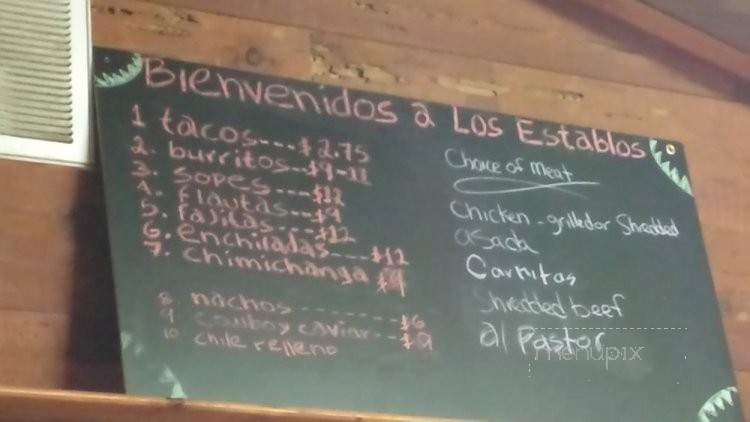 Bienvenidos a Los Establos
1 tacos---$2.75
2. burritos--$9-11
3. sopes---$12
4. flautas--$9
5. fajitas---$12
6. enchiladas---$12
7. chimichanga $9
8 nachos--------$6
9 cowboy caviar--$9
10 chile relleno
Choice of meat
Chicken-grilled or Shredded
asada
Carnitas
Shredded beef
al Pastor
menupix